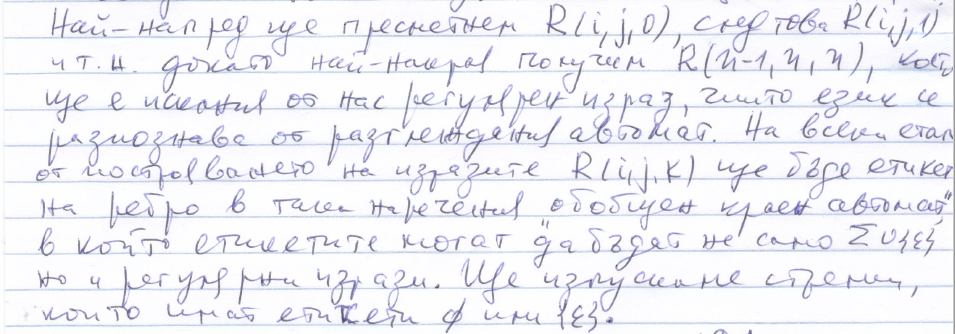 Най-напред ще пресметнем R(i,j,0), след това R(i,j,1)
и т.н. докато най-накрая получим R(n-1,n,n), който
ще е искания от нас регулярен израз, чийто език се
разпознава от разглеждания автомат. На всеки етап
от построяването на изразите R(i,j,k) ще бъде етикет
на ребро в така наречения "обобщен краен автомат",
в който етикетите могат да бъдат не само Σ∪{ε}
но и регулярни изрази. Ще изпускаме стрелки,
които имат етикети ϕ или {ε}.